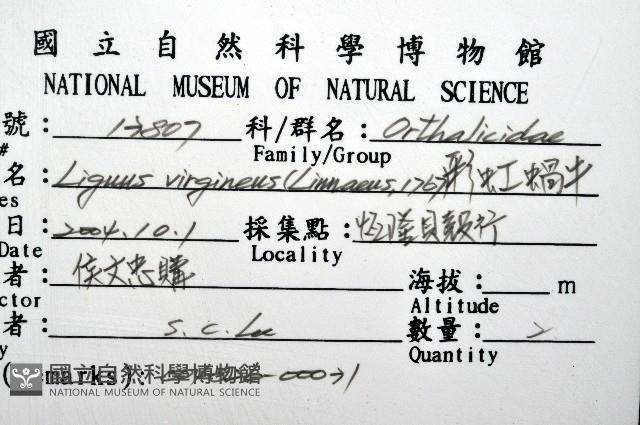 國立自然科學博物館
NATIONAL MUSEUM OF NATURAL SCIENCE
號: 13807 科/群名: Orthalicidae
# Family/Group
名: Liguus virgineus (Linnaeus, 176 彩虹蝸牛
es
日: 2004.10.1 採集點: 恆隆貝殼行
Date Locality
者: 侯文忠購 海拔: m
ctor Altitude
者: S. C. Lee 數量: 2
y Quantity
marks):
國立自然科學博物館
NATIONAL MUSEUM OF NATURAL SCIENCE